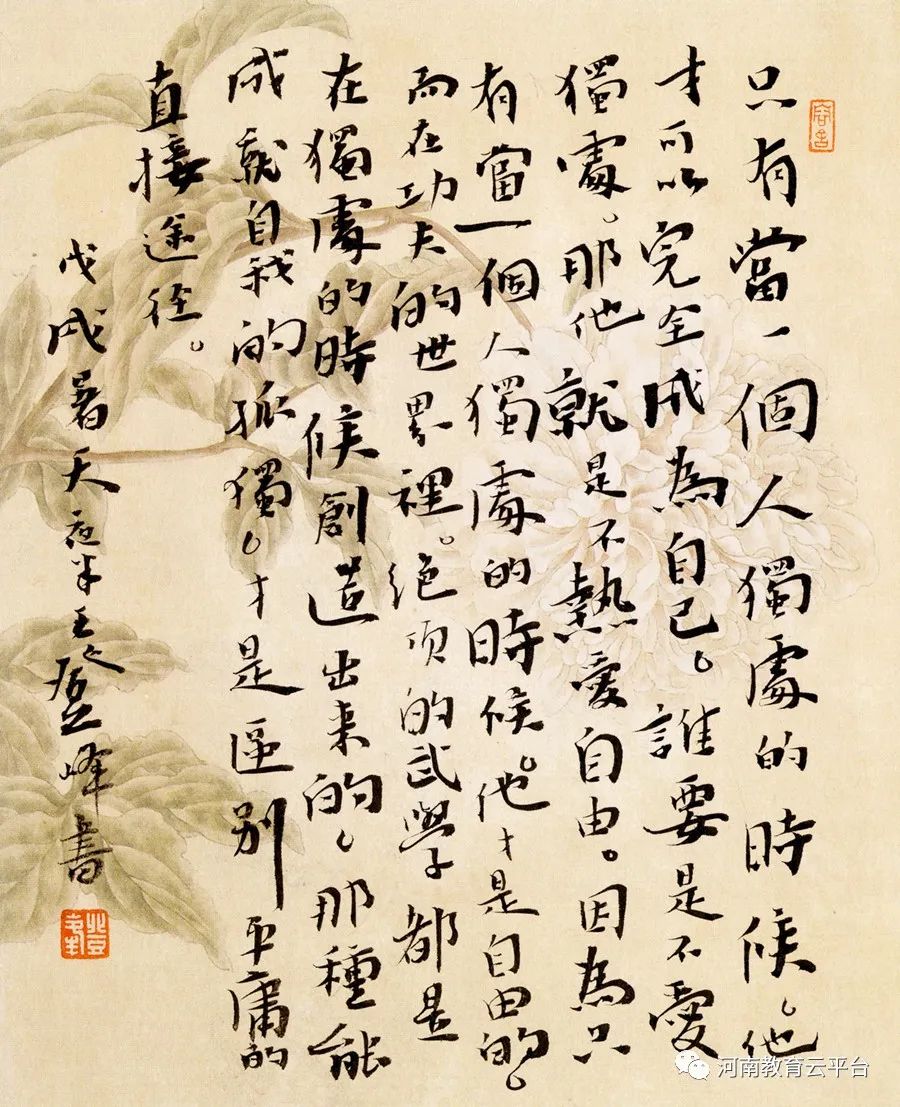 只有當一個人獨處的時候。他
才可以完全成為自己。誰要是不愛
獨處。那他就是不熱愛自由。因為只
有當一個人獨處的時候。他才是自由的。
而在功夫的世界裡。絕頂的武學都是
在獨處的時候創造出来的。那種能
成就自我的孤獨。才是區別平庸的
直接途径。
戊戌暑天夜半王登峰書
河南教育云平台